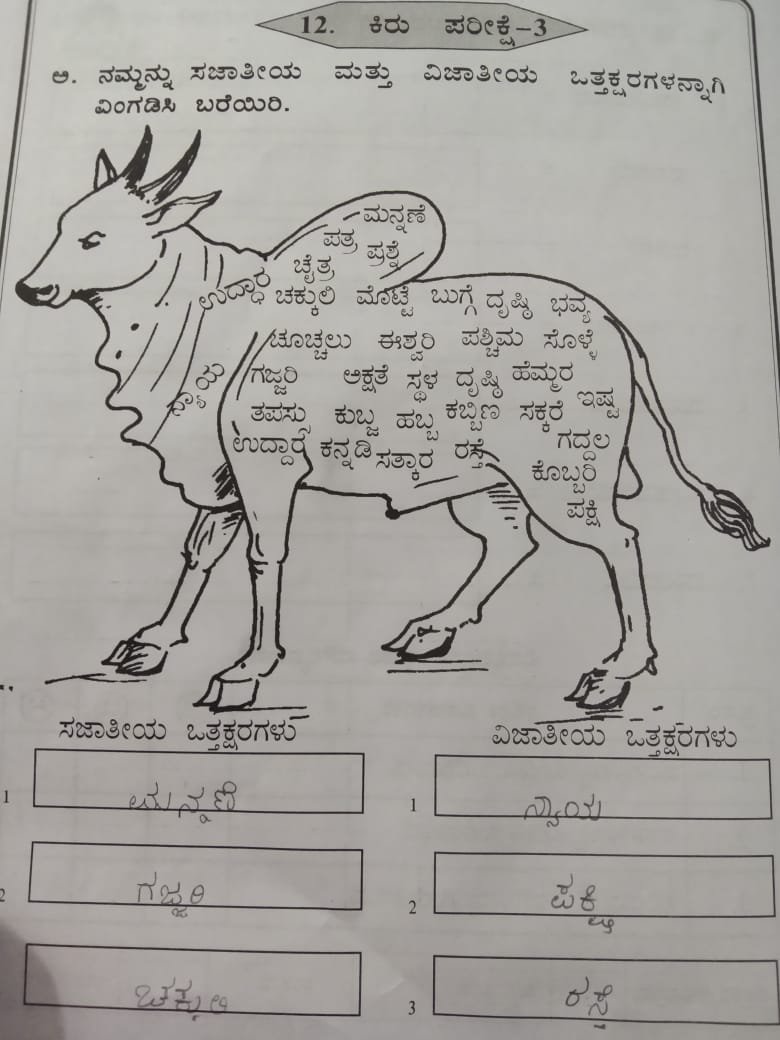 12. ಕಿರು ಪರೀಕ್ಷೆ-3
ಅ. ನಮ್ಮನ್ನು ಸಜಾತೀಯ ಮತ್ತು ವಿಜಾತೀಯ ಒತ್ತಕ್ಷರಗಳನ್ನಾಗಿ
ವಿಂಗಡಿಸಿ ಬರೆಯಿರಿ.
ಮನ್ನಣೆ
ಪತ್ರ ಪ್ರಶ್ನೆ
ಚೈತ್ರ
ಉದ್ಧಾರ ಚಕ್ಕುಲಿ ಮೊಟ್ಟೆ ಬುಗ್ಗೆ ದೃಷ್ಠಿ ಭವ್ಯ
ಚೂಚ್ಚಲು ಈಶ್ವರಿ ಪಶ್ಚಿಮ ಸೊಳ್ಳೆ
ನ್ಯಾಯ ಗಜ್ಜರಿ ಅಕ್ಷತೆ ಸ್ಥಳ ದೃಷ್ಠಿ ಹೆಮ್ಮರ
ತಪಸ್ಸು ಕುಬ್ಜ ಹಬ್ಬ ಕಬ್ಬಿಣ ಸಕ್ಕರೆ ಇಷ್ಟ
ಉದ್ದಾರ ಕನ್ನಡಿ ಸತ್ಕಾರ ರಸ್ತೆ ಗದ್ದಲ
ಕೊಬ್ಬರಿ
ಪಕ್ಷಿ
ಸಜಾತೀಯ ಒತ್ತಕ್ಷರಗಳು ವಿಜಾತೀಯ ಒತ್ತಕ್ಷರಗಳು
1 ಮನ್ನಣೆ 1 ನ್ಯಾಯ
2 ಗಜ್ಜರಿ 2 ಪಕ್ಷಿ
ಚಕ್ಕುಲಿ 3 ರಸ್ತೆ